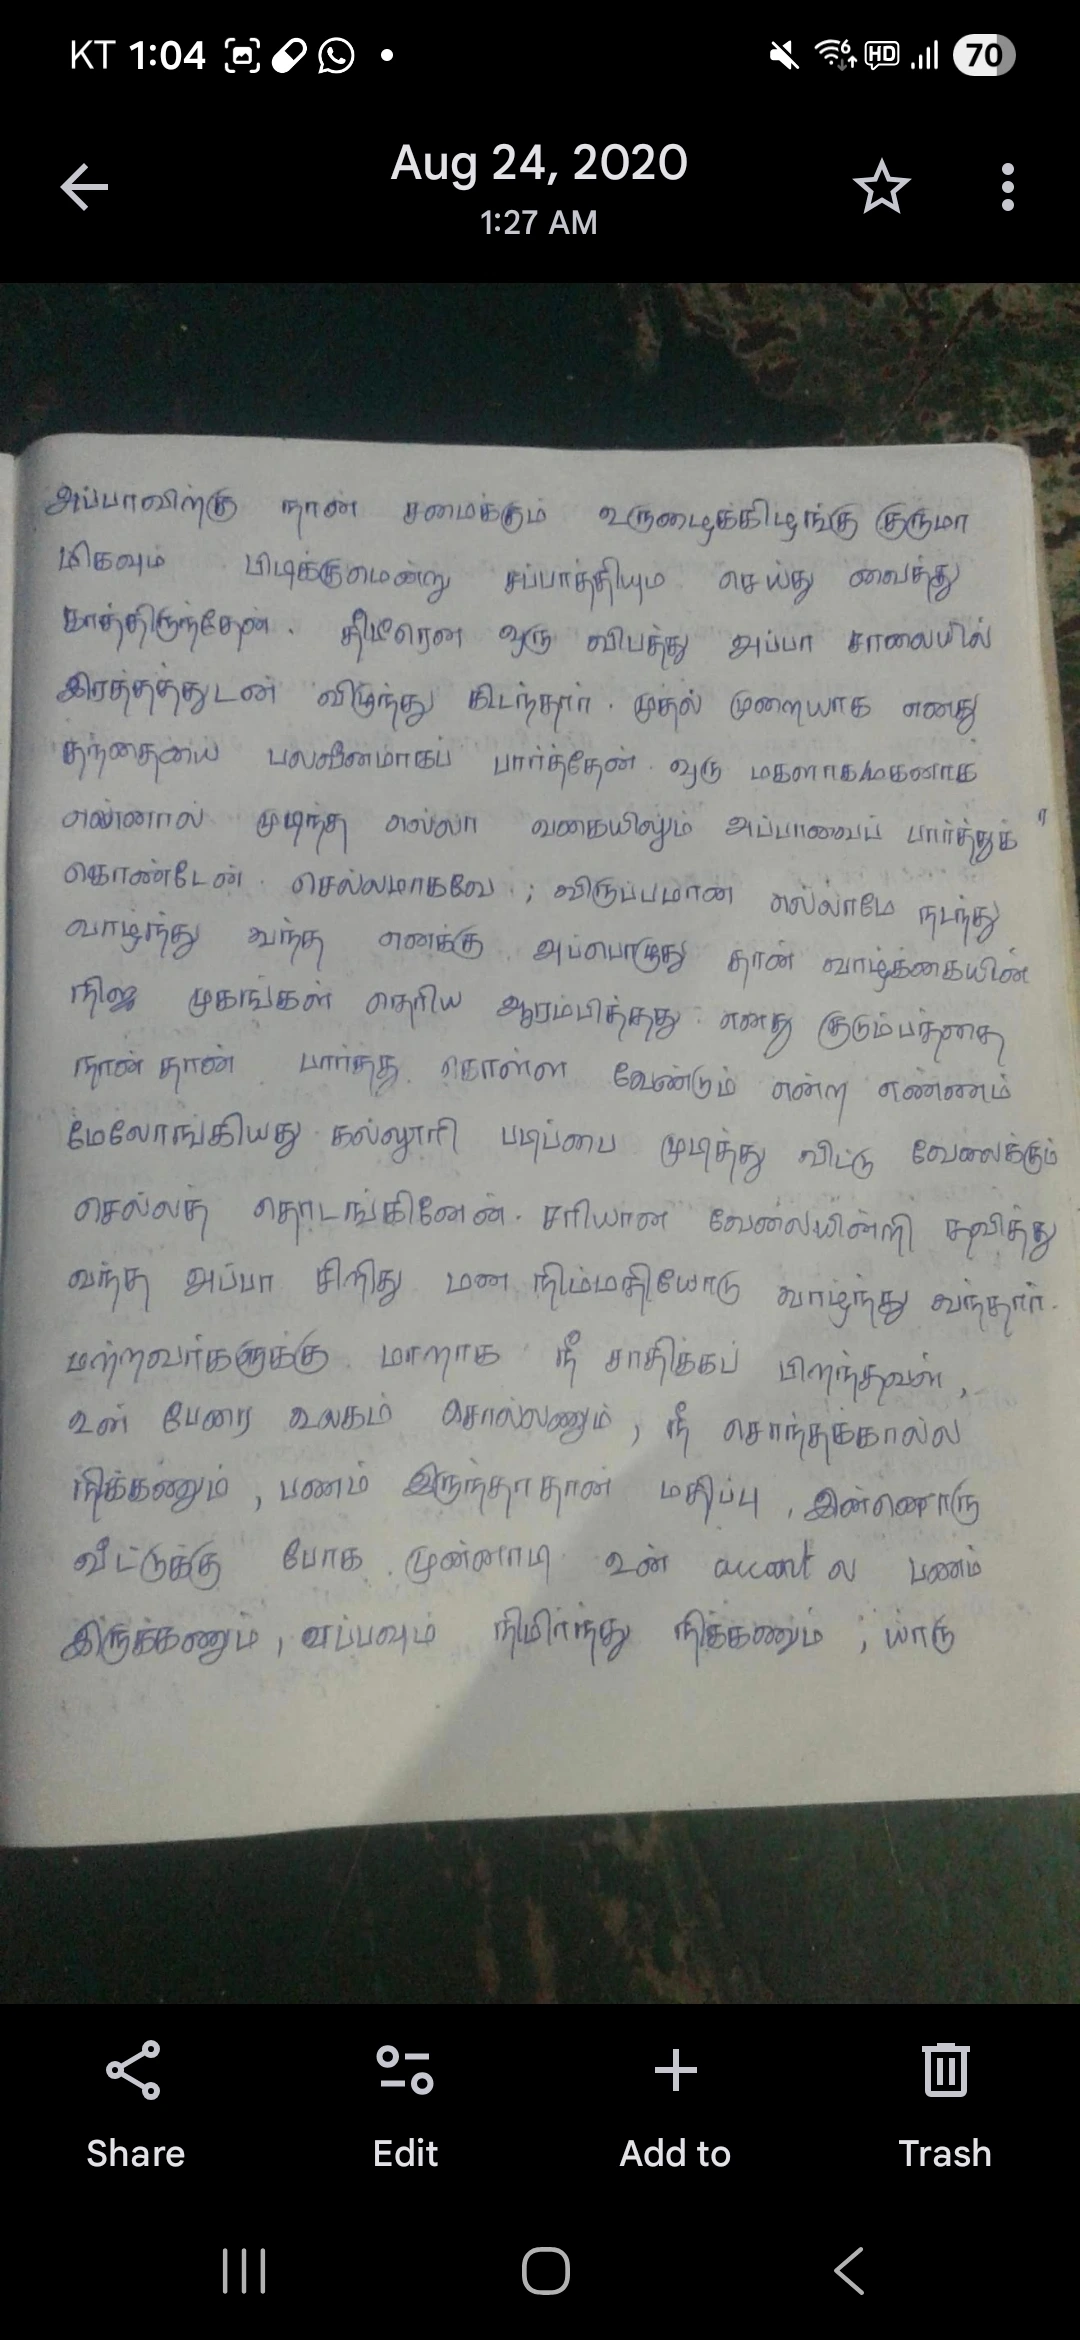 KT 1:04 HD 70
Aug 24, 2020
1:27 AM
அப்பாவிற்கு நான் சமைக்கும் உருளைக்கிழங்கு குருமா
மிகவும் பிடிக்குமென்று சப்பாத்தியும் செய்து வைத்து
காத்திருந்தேன். திடீரென ஒரு விபத்து அப்பா சாலையில்
இரத்தத்துடன் விழுந்து கிடந்தார். முதல் முறையாக எனது
தந்தையை பலவீனமாகப் பார்த்தேன். ஒரு மகளாக/மகனாக
என்னால் முடிந்த எல்லா வகையிலும் அப்பாவைப் பார்த்துக்
கொண்டேன். செல்லமாகவே ; விருப்பமான எல்லாமே நடந்து
வாழ்ந்து வந்த எனக்கு அப்பொழுது தான் வாழ்க்கையின்
நிஜ முகங்கள் தெரிய ஆரம்பித்தது. எனது குடும்பத்தை
நான் தான் பார்த்து கொள்ள வேண்டும் என்ற எண்ணம்
மேலோங்கியது. கல்லூரி படிப்பை முடித்து விட்டு வேலைக்கும்
செல்லத் தொடங்கினேன். சரியான வேலையின்றி தவித்து
வந்த அப்பா சிறிது மன நிம்மதியோடு வாழ்ந்து வந்தார்.
மற்றவர்களுக்கு மாறாக நீ சாதிக்கப் பிறந்தவள்,
உன் பேரை உலகம் சொல்லணும், நீ சொந்தக்கால்ல
நிக்கணும், பணம் இருந்தாதான் மதிப்பு, இன்னொரு
வீட்டுக்கு போக முன்னாடி உன் accont ல பணம்
இருக்கணும், எப்பவும் நிமிர்ந்து நிக்கணும் ; யாரு
Share Edit Add to Trash